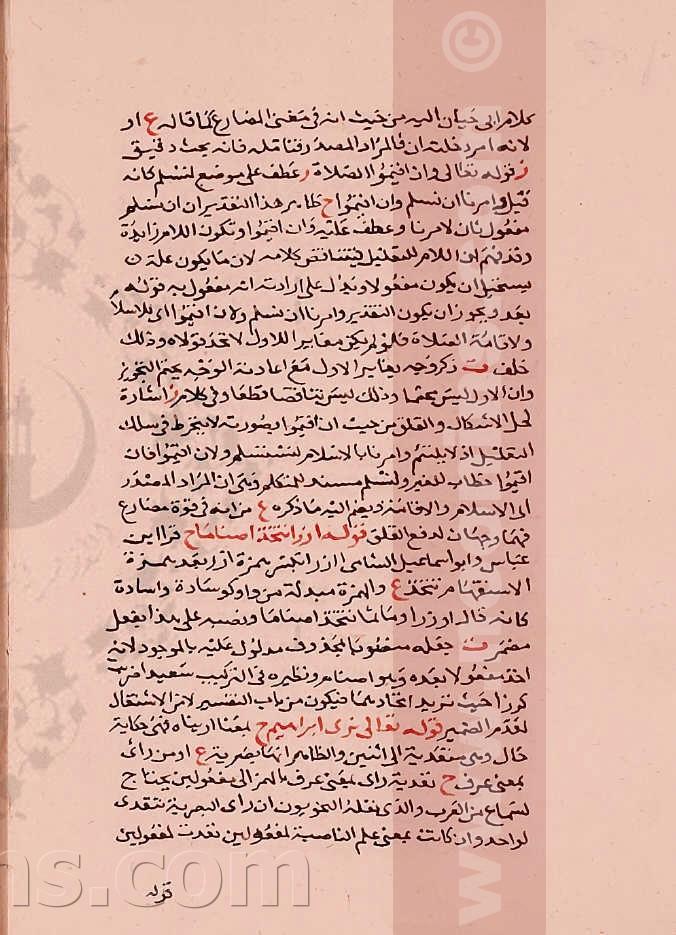 كلام ابى حيان اليه من حيث انه فى معنى المضارع كما قاله ع او
لانه امر دخلت ان فالمراد المصدر فتامله فانه بحث دقيق
ز قوله تعالى وان اقيموا الصلاة ز عطف على موضع لنسلم كانه
قيل وامرنا ان نسلم وان اقيموا ح ظاهر هذا التقدير ان لنسلم
مفعول ثان لامرنا وعطف عليه وان اقيموا وتكون اللام زايدة
وقد قدم ان اللام للتعليل فيتناقض كلامه لان ما يكون علة
يستحيل ان يكون مفعولا ويدل على ارادته انه مفعول به قوله
بعد ويجوز ان يكون التقدير وامرنا ان نسلم ولان اقيموا اى للاسلام
ولاقامة الصلاة فلو لم يكن مغايرا للاول لاتحد قولاه وذلك
خلف ت ذكر وجه يغاير الاول مع اعادته الوجه بحتم التجويز
وان الاول ليس بحتما وذلك ليس تناقضا قطعا وفى كلام ز اشارة
لحل الاشكال والقلق من حيث ان اقيموا بصورته لا ينخرط فى سلك
التعليل اذ لا يلتئم وامرنا بالاسلام لنستسلم ولان اقيموا فان
اقيموا خطاب للغير ولنسلم مسند للمتكلم فبين ان المراد المصدر
اى الاسلام والاقامة ويضم اليه ما ذكره ع من انه فى قوة مضارع
فهما وجهان لدفع القلق قوله ازر اتتخذ اصناما ح قرا ابن
عباس وابو اسماعيل الشامى اازر ابكسر همزة ازر بعد همزة
الاستفهام تتخذ ع والهمزة مبدلة من واو كوسادة واسادة
كانه قال اوزرا وماثما تتخذ اصناما ونصبه على هذا بفعل
مضمر ت جعله منصوبا بمحذوف مدلول عليه بالموجود لانه
اخذ مفعولا بعده وهو اصناما ونظيره فى التركيب سعيدا ضرب
كرزا حيث تريد اتحادهما فيكون من باب التفسير لا من الاشتغال
لعدم الضمير قوله تعالى نرى ابراهيم ح بمعنا اريناه فهى حكاية
حال وهى متعدية الى اثنين والظاهر انها بصرية ع او من راى
بمعنى عرف ح تعدية راى بمعنى عرف بالهمز الى مفعولين يحتاج
لسماع من العرب والذى نقله النحويون ان راى البصرية تتعدى
لواحد وان كانت بمعنى علم الناصبة لمفعولين تعدت لمفعولين
قوله
ns.com